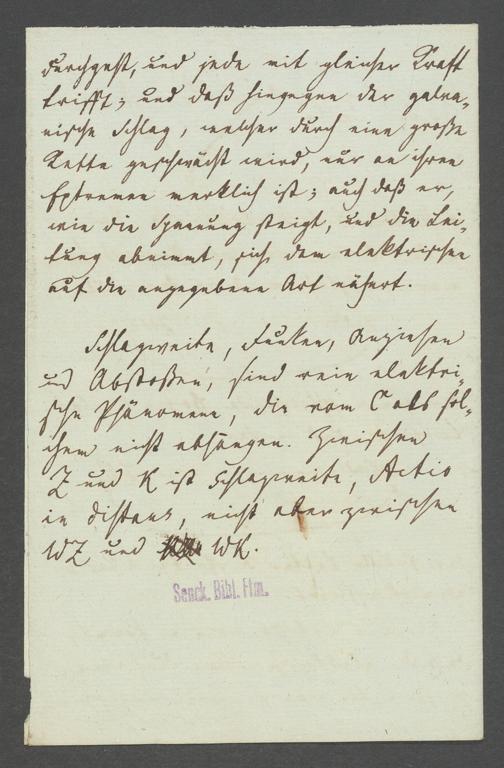 durchgeht, und jede mit gleicher Kraft
trifft; und daß hingegen der galva-
nische Schlag, welcher durch eine große
Kette geschwächt wird, nur an ihren
Extremen merklich ist; auch daß er,
wie die Spannung steigt, und die Lei-
tung abnimmt, sich dem elektrischen
auf die angegebene Art nähert.
Schlagweite, Funken, Anziehen
und Abstoßen, sind rein elektri-
sche Phänomene, die vom C als sol-
chem nicht abhängen. Zwischen
Z und K ist Schlagweite, Actio
in distans, nicht aber zwischen
WZ und WK.
Senck. Bibl. Ffm.